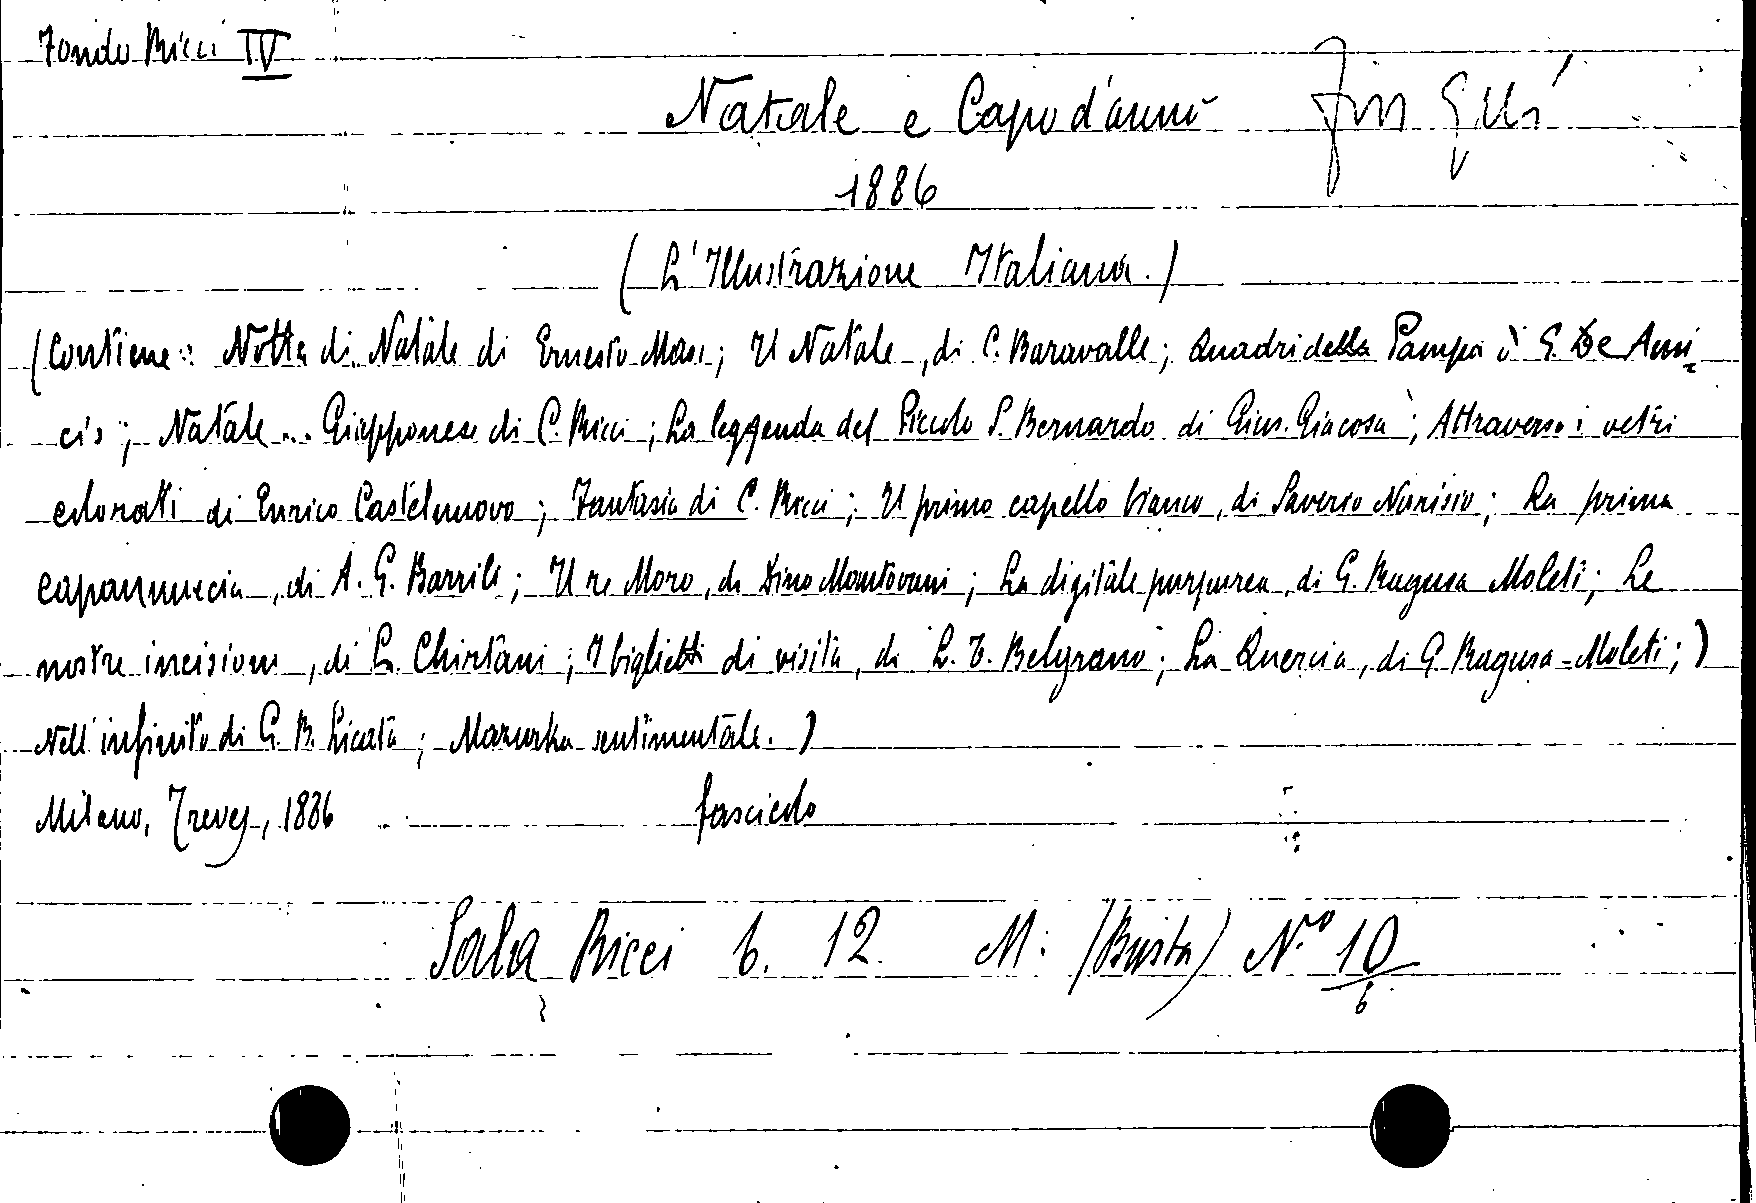 Fondo Ricci IV
Natale e Capo d'anno
1886
(L'Illustrazione Italiana.)
(Contiene: Notte di Natale di Ernesto Masi; Il Natale, di C. Baravalle; Quadri della Pampa di E. De Ami-
cis; Natale... Giapponese di C. Ricci; La leggenda del Piccolo S. Bernardo di Gius. Giacosa; Attraverso i vetri
colorati di Enrico Castelnuovo; Fantasia di C. Ricci; Il primo capello bianco, di Saverio; La prima
capannuccia, di A. G. Barrili; Il re Moro, di Dino Mantovani; La digitale purpurea, di G. Ragusa Moleti; Le
nostre incisioni, di L. Chirtani; I biglietti di visita, di L. T. Belgrano; La Quercia, di G. Ragusa-Moleti;)
Nell'infinito di G. B. Licata; Mazurka sentimentale.)
Milano, Treves, 1886 fascicolo
Sala Ricci b. 12 M: (Busta) N.º 10
6